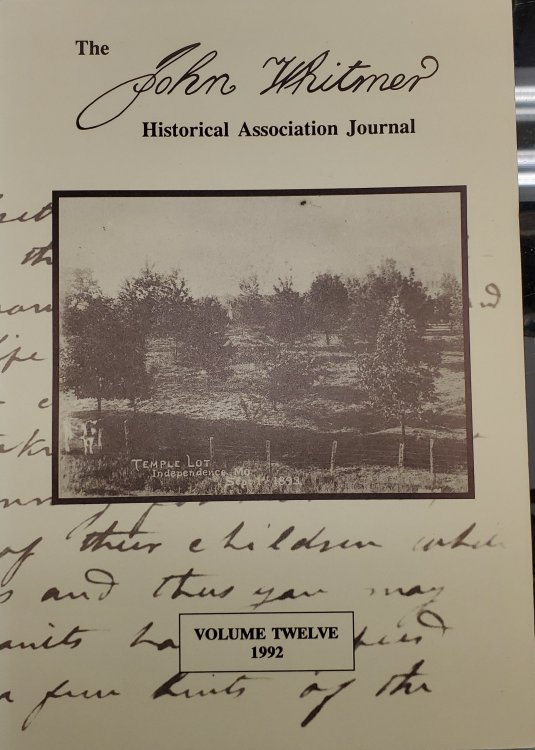 The
John Whitmer
Historical Association Journal
TEMPLE LOT
Independence, Mo.
Sept. 1st 1893
of their children while
s and thus you may
VOLUME TWELVE
1992
a few hints of the